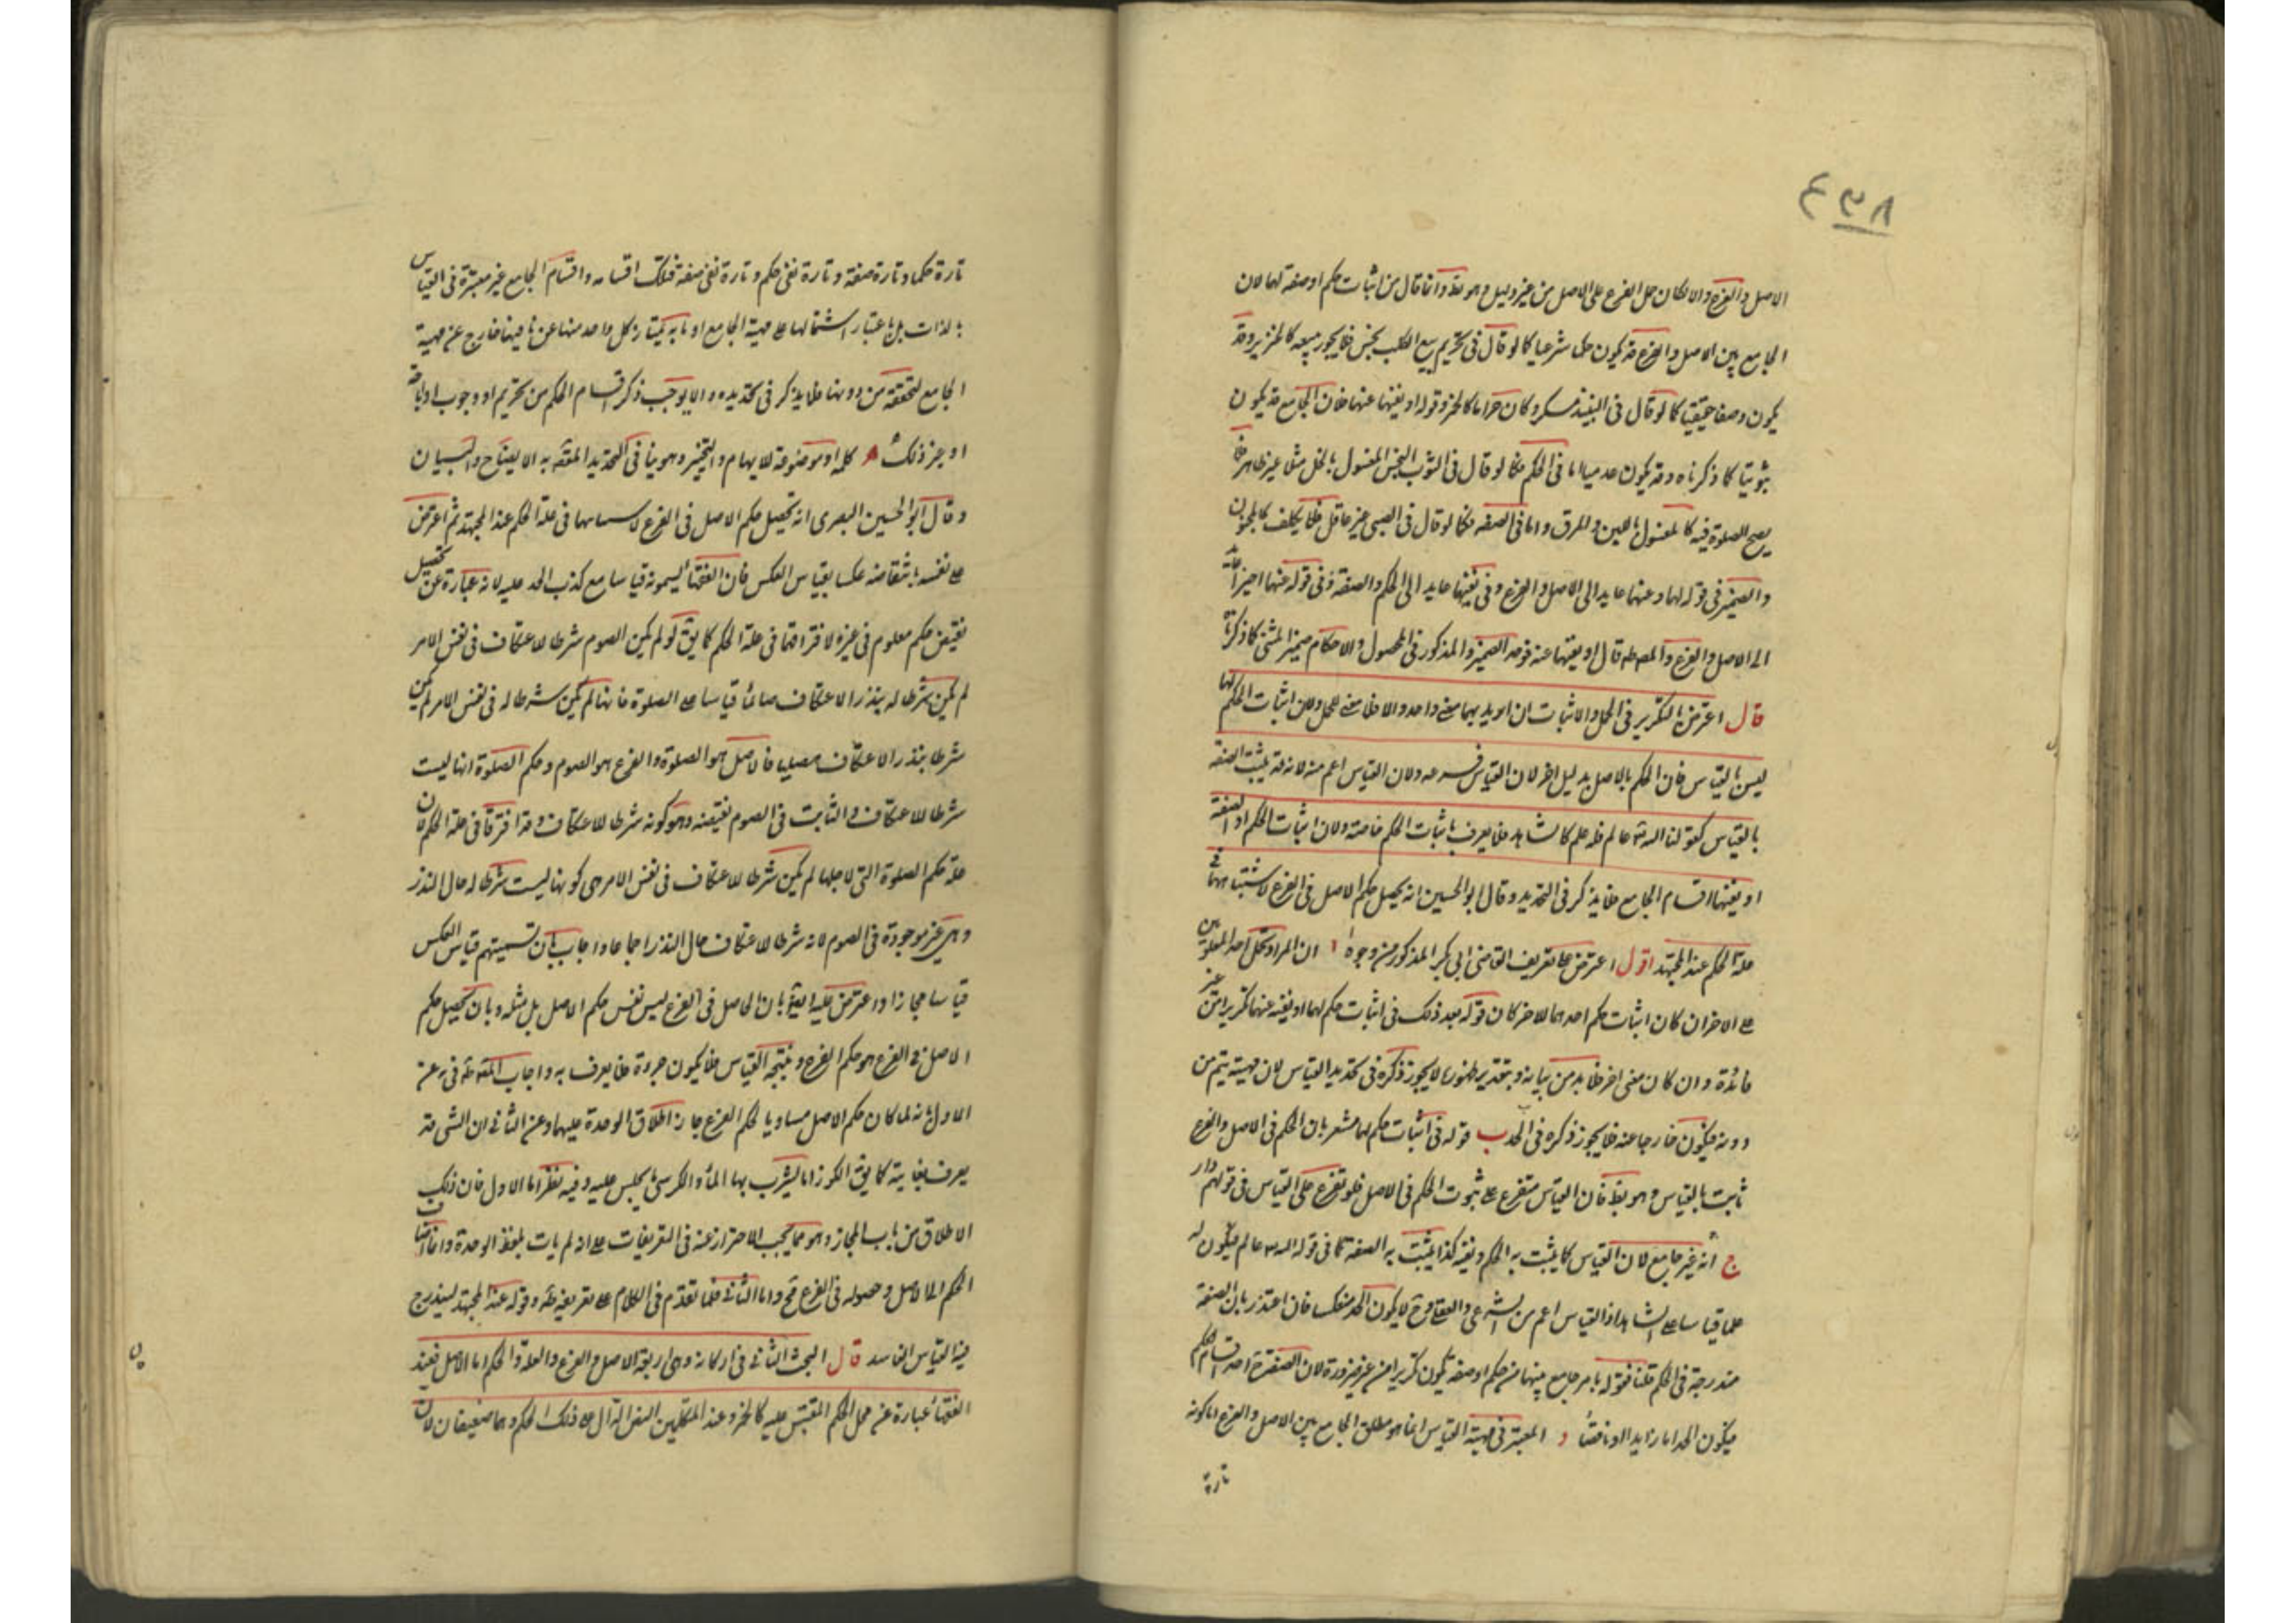 ٤٣٨
الاصل والفرع والا لكان حمل الفرع على الاصل من غير دليل وهو بط وانما قال من اثبات حكم او صفة لهما لان
الجامع بين الاصل والفرع قد يكون حكما شرعيا كما لو قال فى تحريم بيع الكلب نجس فلا يجوز بيعه كالخنزير وقد
يكون وصفا حقيقيا كما لو قال فى النبيذ مسكر وكان حراما كالخمر وقوله او نفيهما عنهما فان الجامع قد يكون
ثبوتيا كما ذكرناه وقد يكون عدميا اما فى الحكم فكما لو قال فى الثوب النجس المغسول بالخل مثلا غير طاهر فلا
يصح الصلوة فيه كالمغسول باللبن والمرق واما فى الصفه فكما لو قال فى الصبى غير عاقل فلا يكلف كالمجنون
والضمير فى قوله لهما وعنهما عايد الى الاصل والفرع وفى نفيهما عايد الى الحكم والصفة وفى قوله عنهما اخيرا عايد
الى الاصل والفرع والمصط قال او نفيهما عنه فوحد الضمير والمذكور فى المحصول والاحكام ضمير المثنى كما ذكرناه
قال اعترض بالتكرير فى الحمل والاثبات ان اريد بهما معنى واحد والا فلا معنى للحمل ولان اثبات الحكم لهما
ليس بالقياس فان الحكم بالاصل بدليل اخر لان القياس فرعه ولان القياس اعم منه لانه قد يثبت الصفة
بالقياس كقولنا الله تع عالم فله علم كالشاهد فلا يعرف باثبات الحكم خاصة ولان اثبات الحكم او الصفة
او نفيهما اقسام الجامع فلا يذكر فى التحديد وقال ابو الحسين انه تحصيل حكم الاصل فى الفرع لاشتباههما فى
علة الحكم عند المجتهد اقول اعترض على تعريف القاضى ابى بكر المذكور من وجوه ا ان المراد بحمل احد المعلومين
على الاخر ان كان اثبات حكم احدهما للاخر كان قوله بعد ذلك فى اثبات حكم لهما او نفيه عنهما تكريرا من غير
فائدة وان كان معنى اخر فلا بد من بيانه وبتقدير ظهوره لا يجوز ذكره فى تحديد القياس لان مهيته يتم من
دونه فيكون خارجا عنه فلا يجوز ذكره فى الحد ب قوله فى اثبات حكم لهما مشعر بان الحكم فى الاصل والفرع
ثابت بالقياس وهو بط فان القياس متفرع على ثبوت الحكم فى الاصل فلو تفرع على القياس فى قولهم دار
ج انه غير جامع لان القياس كما يثبت به الحكم ونفيه كذا يثبت به الصفة كما فى قوله الله عالم فيكون له
علما قياسا على الشاهد اذ القياس اعم من الشرعى والعقلى وح لا يكون الحد منعكسا فان اعتذر بان الصفة
مندرجة فى الحكم قلنا فقوله بامر جامع بينهما من حكم او صفة يكون تكريرا من غير ضرورة لان الصفة ح احد اقسام الحكم
فيكون الحد اما زايد او ناقصا د المعتبر فى مهية القياس انما هو مطلق الجامع بين الاصل والفرع اما كونه
تارة
تارة حكما وتارة صفة وتارة نفى حكم وتارة نفى صفة فتلك اقسامه واقسام الجامع غير معتبرة فى القياس
بالذات بل باعتبار اشتمالها على مهية الجامع اذ ما به يمتاز كل واحد منها عن باقيها خارج عن مهية
الجامع لتحققه من دونها فلا يذكر فى تحديده والا لوجب ذكر اقسام الحكم من تحريم او وجوب او اباحة
او غير ذلك ه كلمة او موضوعة للابهام والتخيير وهو ينافى التحديد المقصود به الايضاح والبيان
وقال ابو الحسين البصرى انه تحصيل حكم الاصل فى الفرع لاشتباههما فى علة الحكم عند المجتهد ثم اعترض
على نفسه بانتقاضه عكسا بقياس العكس فان الفقهاء يسمونه قياسا مع كذب الحد عليه لانه عبارة عن تحصيل
نقيض حكم معلوم فى غيره لافتراقهما فى علة الحكم كما يق لو لم يكن الصوم شرطا للاعتكاف فى نفس الامر
لم يكن شرطا له بنذر الاعتكاف صائما قياسا على الصلوة فانها لما لم يكن شرطا له فى نفس الامر لم يكن
شرطا بنذر الاعتكاف مصليا فالاصل هو الصلوة والفرع هو الصوم وحكم الصلوة انها ليست
شرطا للاعتكاف والثابت فى الصوم نقيضه وهو كونه شرطا للاعتكاف وقد افترقا فى علة الحكم لان
علة حكم الصلوة التى لاجلها لم يكن شرطا للاعتكاف فى نفس الامر هى كونها ليست شرطا له حال النذر
وهى غير موجودة فى الصوم لانه شرط للاعتكاف حال النذر اجماعا واجاب بان تسميتهم قياس العكس
قياسا مجازا واعترض عليه ايضا بان الحاصل فى الفرع ليس نفس حكم الاصل بل مثله وبان تحصيل حكم
الاصل فى الفرع هو حكم الفرع ونتيجة القياس فلا يكون جزءه فلا يعرف به واجاب المصنف فى يه عن
الاول بانه لما كان حكم الاصل مساويا لحكم الفرع جاز اطلاق الوحدة عليهما وعن الثانى ان الشى قد
يعرف بغايته كما يق الكوز اناء يشرب بها الماء والكرسى ما يجلس عليه وفيه نظر اما الاول فان ذلك
الاطلاق من باب المجاز وهو مما يجب الاحتراز عنه فى التعريفات على انه لم يات بلفظ الوحدة وانما اضاف
الحكم الى الاصل وحصوله فى الفرع مح واما الثانى فلما تقدم فى الكلام على تعريفه وقوله عند المجتهد ليندرج
فيه القياس الفاسد قال البحث الثانى فى اركانه وهى اربعة الاصل والفرع والعلة والحكم اما الاصل فعند
الفقهاء عبارة عن محل الحكم المقيس عليه كالخمر وعند المتكلمين النص الدال على ذلك الحكم وهما ضعيفان لان